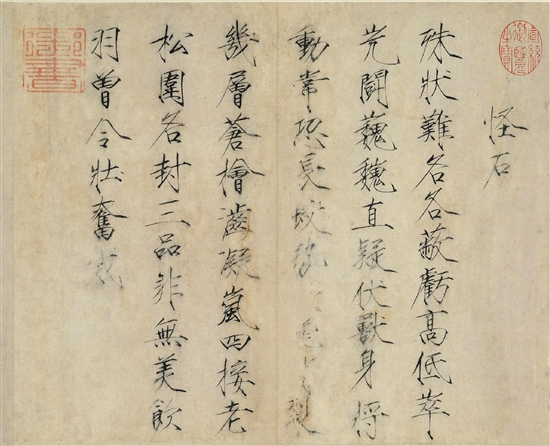 怪石
殊狀難名各蔽虧高低崒
屼鬪巍巍直疑伏獸身將
動常恐長蛟
幾層蒼檜齒凝嵐四接老
松圍各封三品非無美飲
羽曾令壯奮
御書